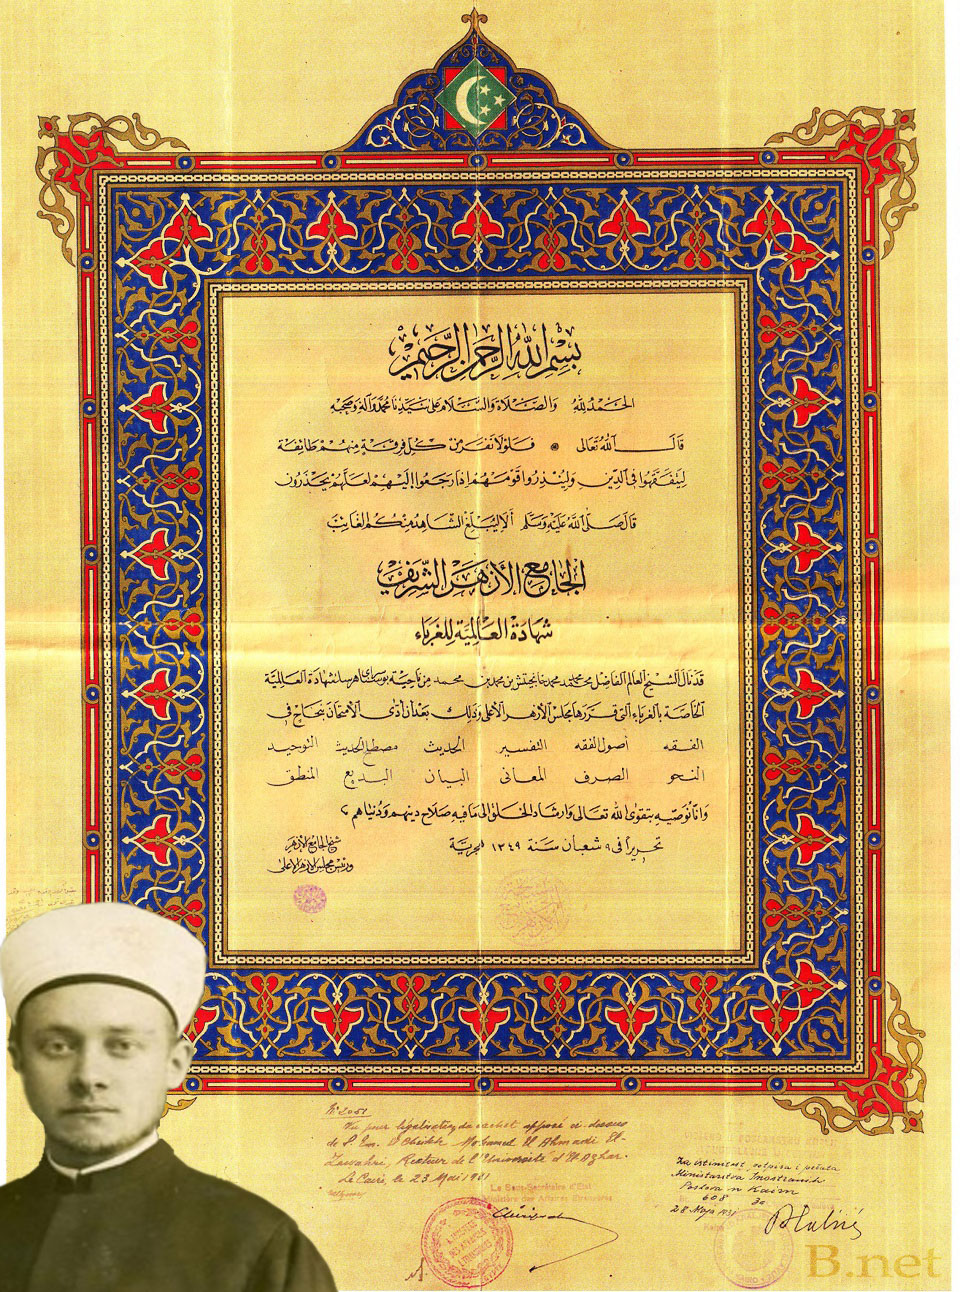 بسم الله الرحمن الرحيم
الحمد لله والصلاة والسلام على سيدنا محمد وآله وصحبه
قال الله تعالى فلولا نفر من كل فرقة منهم طائفة
ليتفقهوا في الدين ولينذروا قومهم إذا رجعوا إليهم لعلهم يحذرون
قال صلى الله عليه وسلم ألا ليبلغ الشاهد منكم الغائب
الجامع الأزهر الشريف
شهادة العالمية للغرباء
قد نال الشيخ العالم الفاضل محمد بن محمد من ناحية شهادة العالمية
الخاصة بالغرباء التي قررها مجلس الأزهر الأعلى وذلك بعد أن أدى الامتحان بنجاح في
الفقه أصول الفقه التفسير الحديث مصطلح الحديث التوحيد
النحو الصرف المعاني البيان البديع المنطق
وانا نوصيه بتقوى الله تعالى وارشاد الخلق الى ما فيه صلاح دينهم ودنياهم
تحريرا في ٩ شعبان سنة ١٣٤٩ هجرية
شيخ الجامع الأزهر
ورئيس مجلس الأزهر الأعلى
N° 2051
Vu pour légalisation du cachet apposé ci-dessus
de S. Em. El Cheikh Mohamed El Ahmadi El-
Zawahri, Recteur de l'Université d'El-Azhar.
Le Caire, le 23 Mai 1931
Le Sous-Secrétaire d'Etat
Ministère des Affaires Etrangères
Za istinitost potpisa i pečata
Ministarstva Inostranih
Poslova u Kairu
608
28 Maja 1931
B.net